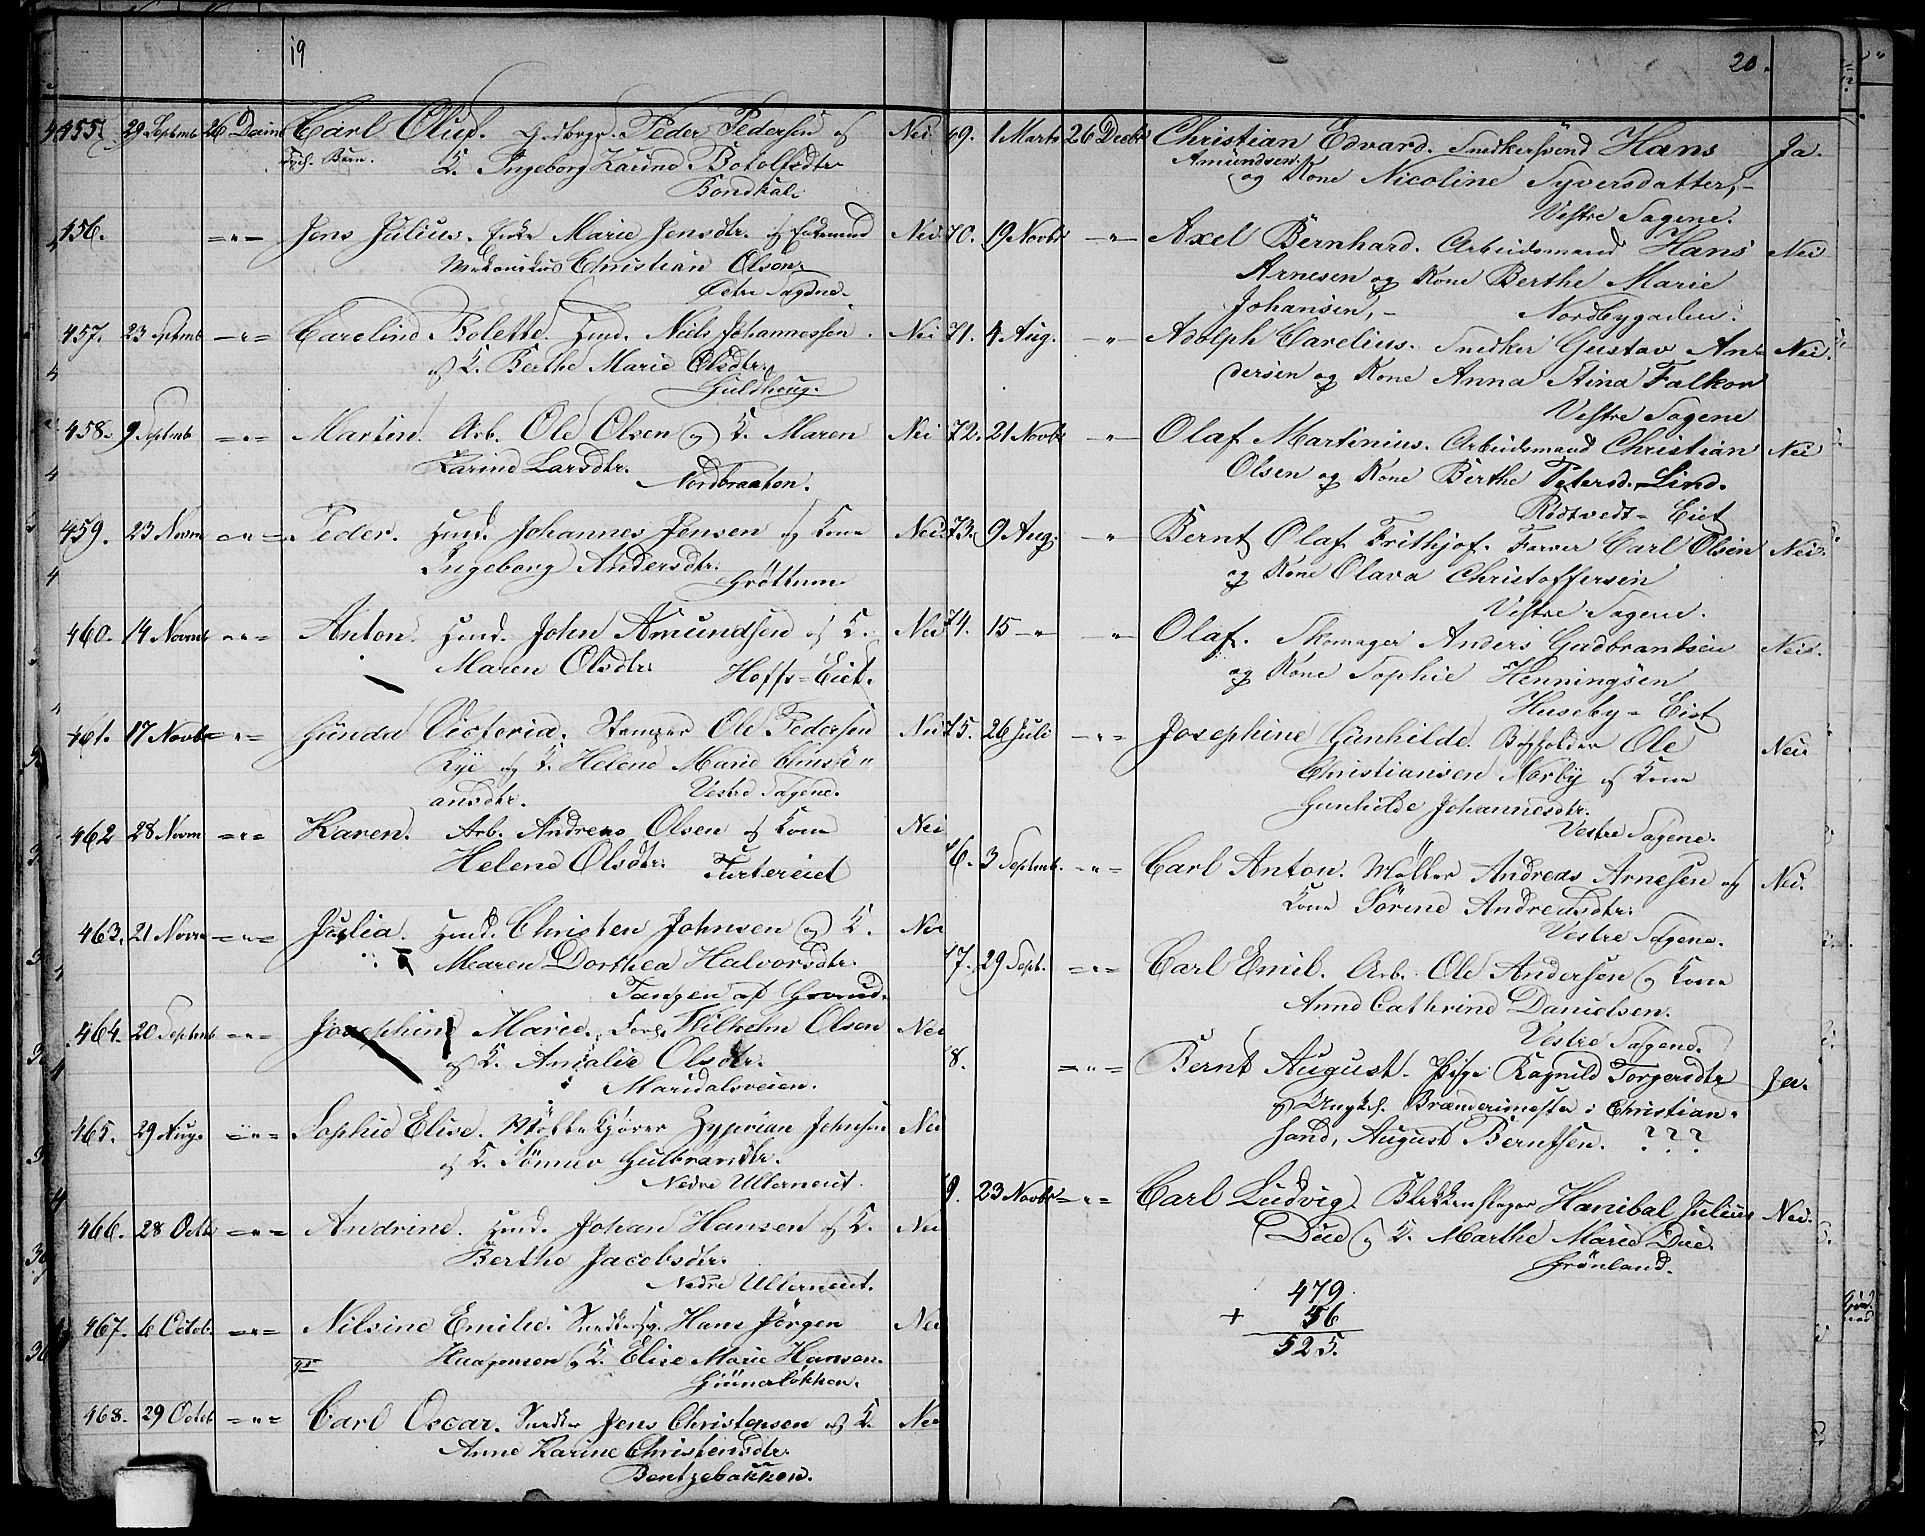 19
455. 29 Septmb 26 Decmb Carl Oluf. Peder Pedersen og Nei
K. Ingeborg Karine Botolfsdtr
156. -"- Jens Julius. Enke Marie Jensdtr. og Nei.
Christian Olsen.
Østre Sagene.
457. 23 Septmb -"- Caroline Bolette. Husm. Niels Johannessen Nei
og K. Berthe Marie Olsdtr.
Guldhoug.
458. 9 Septmb -"- Martin. Arb. Ole Olsen og K. Maren Nei
Karine Larsdtr.
Nordbraaten.
459. 23 Novm -"- Peder. Husm. Johannes Jensen og Kone Nei
Ingeborg Andersdtr.
Grøttum.
460. 14 Novmb -"- Anton. Husm. John Amundsen og K. Nei
Maren Olsdtr. Hoffs-Eiet.
461. 17 Novbr -"- Gunda Victoria. Stamper Ole Pedersen Nei
Rye og K. Helene Marie Christi-
ansdtr. Vestre Sagene.
462 28 Novm -"- Karen. Arb. Andreas Olsen og Kone Nei
Helene Olsdtr. Turtereiet
463. 21 Novm -"- Julia. Husm. Christen Johnsen og K. Nei
Maren Dorthea Halvorsdtr.
Tangen af Grorud.
464. 20 Septmb -"- Josephine Marie. Wilhelm Olsen Nei
og K. Amalie Olsdtr.
Maridalsveien.
465. 29 Aug. -"- Sophie Elise. Møllekjører Zyprian Johnsen Nei
og K. Sønnev Gulbrandsdtr.
Nedre Ullerneiet.
466. 28 Octb -"- Andrine. Husm. Johan Hansen og K. Nei
Berthe Jacobsdtr.
Nedre Ullerneiet.
467. 6 Octob. -"- Nilsine Emilie. Snedkersv. Hans Jørgen Nei
Haagensen og K. Elise Marie Hansen.
Grünerløkken.
468. 29 Octob -"- Carl Oscar. Snedker Jens Christensen og K. Nei
Anne Karine Christensdtr.
Bentzebakken.
20.
69. 1 Marts 26 Decbr Christian Edvard. Snedkersvend Hans Ja.
Amundsen
og Kone Nicoline Syversdatter,-
Vestre Sagene.
70. 19 Novbr -"- Axel Bernhard. Arbeidsmand Hans Nei
Arnesen og Kone Berthe Marie
Johansen,- Nordbygaden.
71. 4 Aug. -"- Adolph Carelius. Snedker Gustav An- Nei.
dersen og Kone Anna Stina Falkor
Vestre Sagene
72. 21 Novbr -"- Olaf Martinius. Arbeidsmand Christian Nei
Olsen og Kone Berthe Petersd. Lind.
Rødtvedt-Eiet
73. 9 Aug. -"- Bernt Olaf Frithjof. Farver Carl Olsen Nei.
og Kone Olava Christoffersen
Vestre Sagene.
74. 15 -"- -"- Olaf. Skomager Anders Gudbrantsen Nei.
og Kone Sophie Henningsen
Huseby-Eiet
75. 26 Juli -"- Josephine Gunhilde. Bogholder Ole Nei
Christiansen Norby og Kone
Gunhilde Johannesdtr.
Vestre Sagene.
76. 3 Septmb. -"- Carl Anton. Møller Andreas Arnesen og Nei.
Kone Sørine Andreasdtr.
Vestre Sagene.
77. 29 Sept. -"- Carl Emil. Arb. Ole Andersen og Kone
Anne Cathrine Danielsen.
Vestre Sagene.
8. -"- Bernt August. Pige Ragnild Torgersdtr Ja.
og Ungk. Brænderimester i Christian-
sand, August Berntsen. ???
9. 23 Novbr -"- Carl Ludvig. Blikkenslager Hanibal Julius Nei.
Due og K. Marthe Marie Due.
Grønland.
479
+ 46
525.